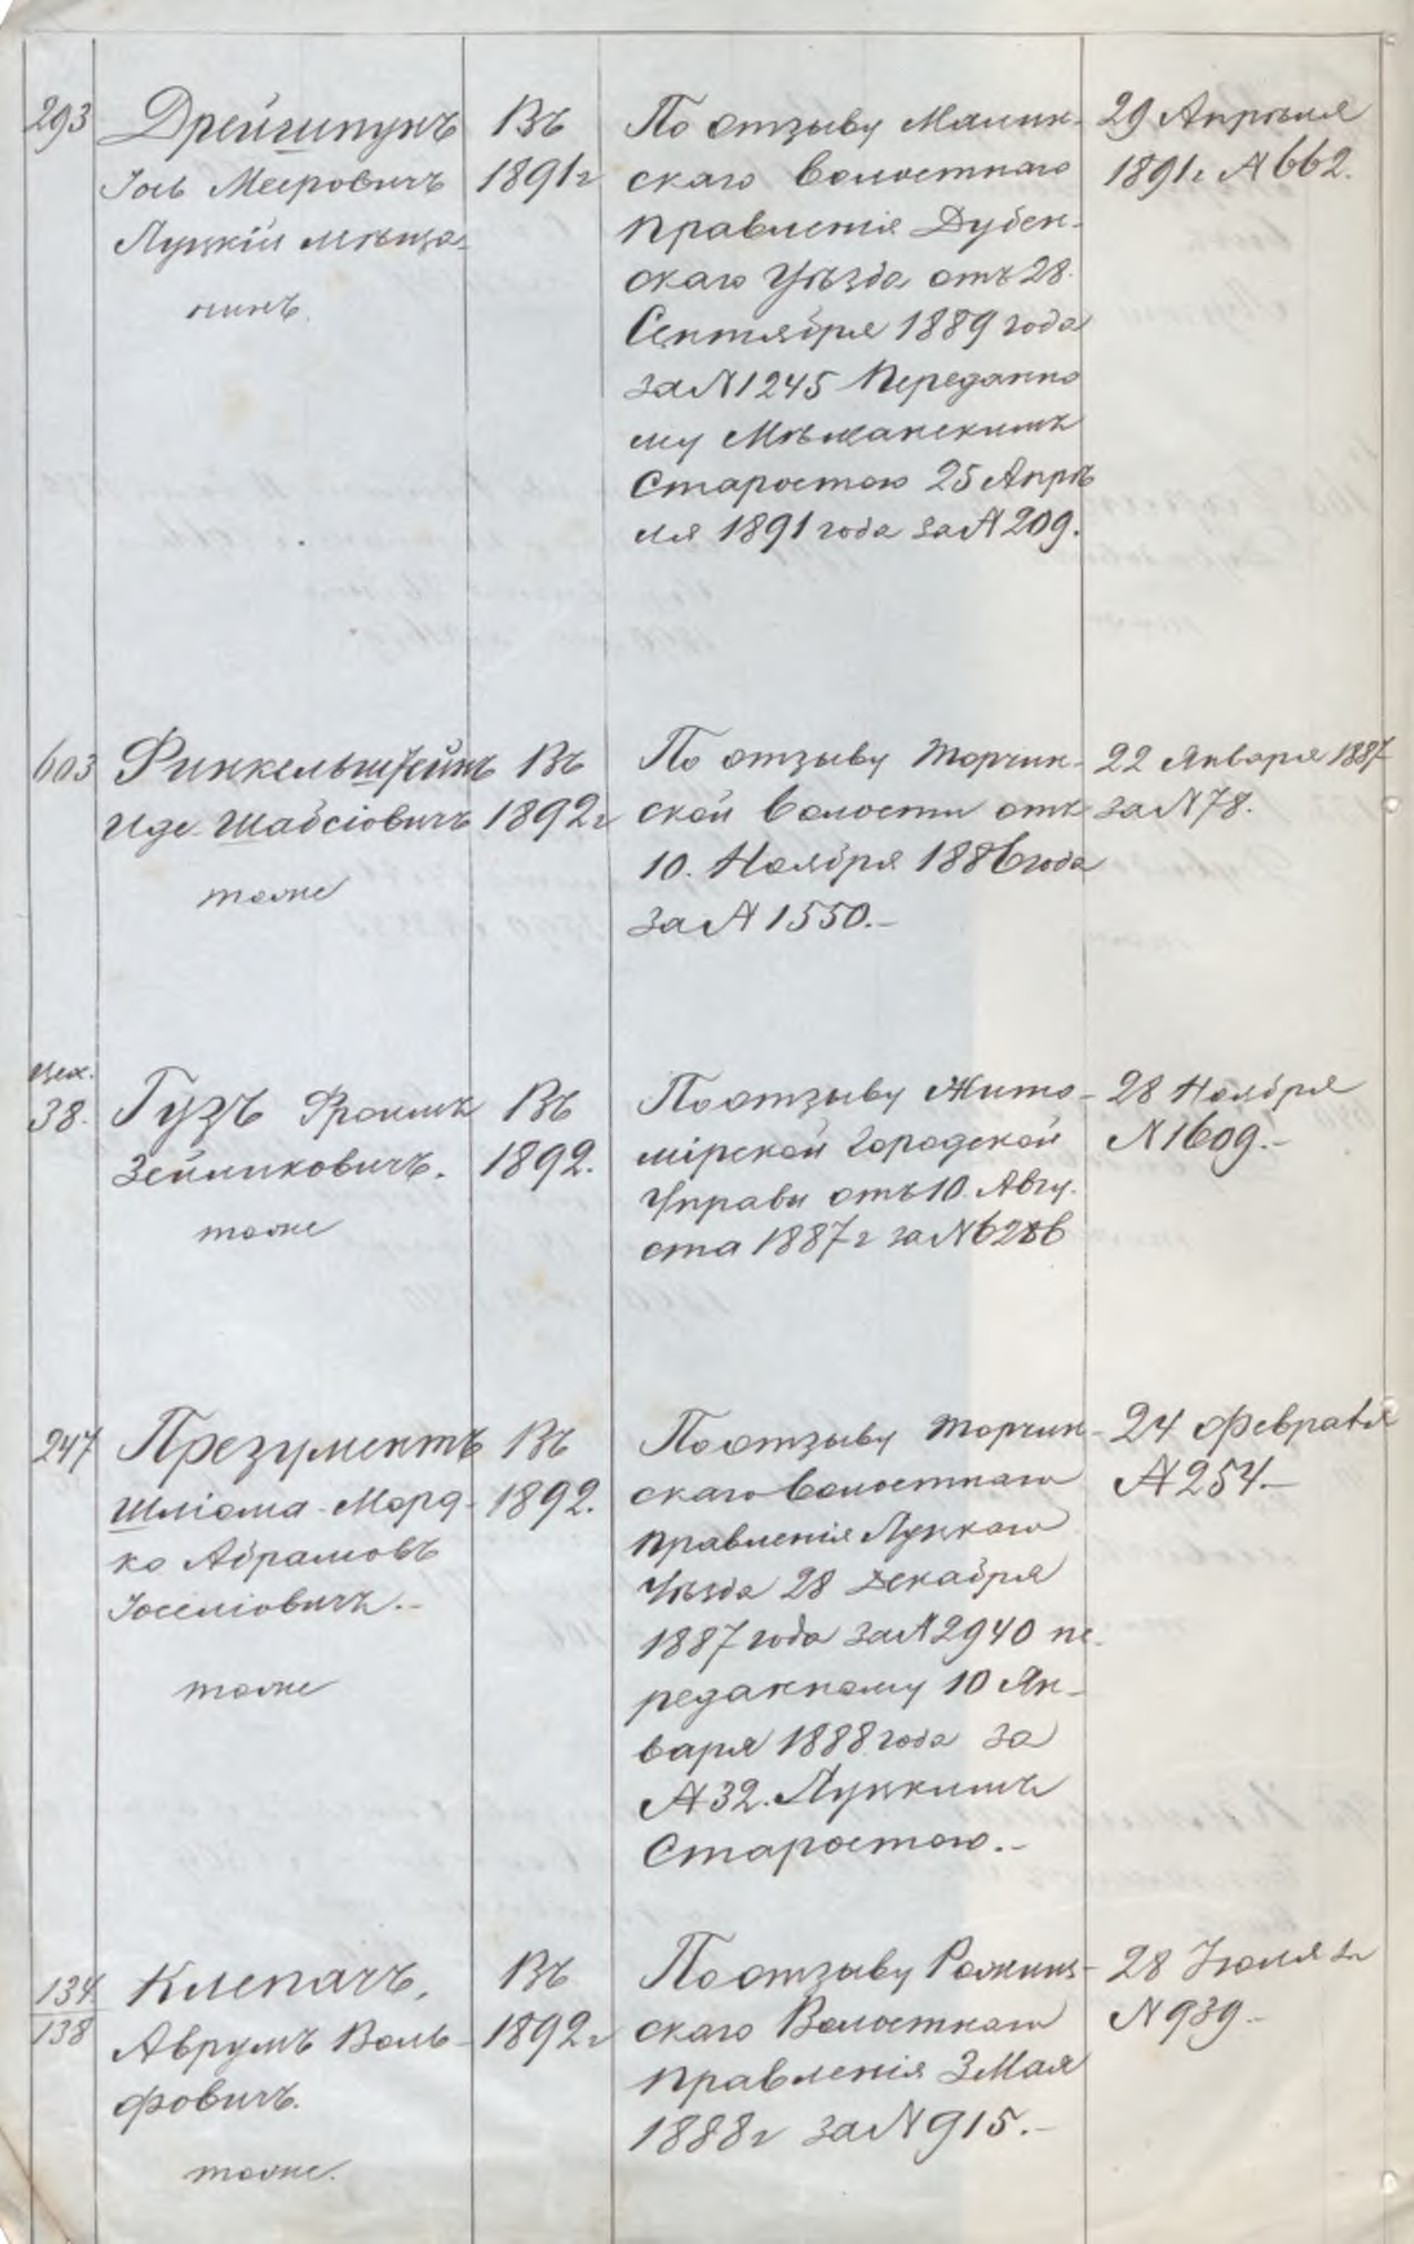 293
Дрейгипунъ
Іось Меєровичъ
Луцкій мѣща-
нинъ.
Въ
1891г
По отзыву Малин-
скаго Волостнаго
Правленія Дубен-
скаго Уѣзда отъ 28
Сентября 1889 года
за № 1245 Переданно
му Мѣщанскимъ
Старостою 25 Апрѣ
ля 1891 года за № 209.
29 Апрѣля
1891г № 662.
603
Финкельштейнъ
Иде-Шабсіовичъ
тоже
Въ
1892г
По отзыву Торчин-
ской Волости отъ
10. Ноября 1886 года
за № 1550.-
22 Января 1887
за № 78.
Цех.
38.
Гузъ Фроимъ
Зейликовичъ.
тоже
Въ
1892.
По отзыву Жито-
мірской Городской
Управы отъ 10. Авгу-
ста 1887г за № 6286
28 Ноября
№ 1609.-
247
Презументъ
Шліома-Морд-
ко Абрамовъ
Іоселіовичъ.-
тоже
Въ
1892.
По отзыву Торчин-
скаго Волостнаго
Правленія Луцкаго
Уѣзда 28 Декабря
1887 года за № 2940 пе-
реданному 10 Ян-
варя 1888 года за
№ 32. Луцкимъ
Старостою.-
24 Февраля
№ 254.-
134
138
Клепачъ,
Аврумъ Воль-
фовичъ.
тоже.
Въ
1892г
По отзыву Рожищ-
скаго Волостнаго
Правленія 3 Мая
1888г за № 915.-
28 Іюля за
№ 939.-